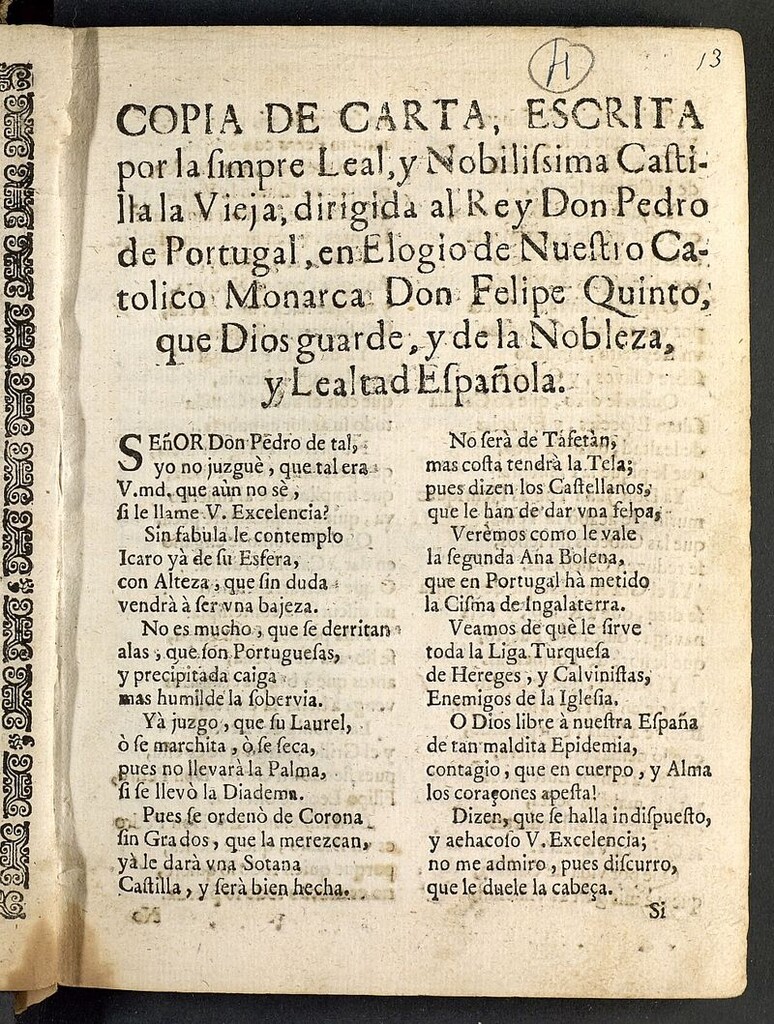 H
13
COPIA DE CARTA, ESCRITA
por la simpre Leal, y Nobilissima Casti-
lla la Vieja, dirigida al Rey Don Pedro
de Portugal, en Elogio de Nuestro Ca-
tolico Monarca Don Felipe Quinto,
que Dios guarde, y de la Nobleza,
y Lealtad Española.
SEñOR Don Pedro de tal,
yo no juzguè, que tal era
V.md. que aùn no sè,
si le llame V. Excelencia?
Sin fabula le contemplo
Icaro yà de su Esfera,
con Alteza, que sin duda
vendrà à ser vna bajeza.
No es mucho, que se derritan
alas, que son Portuguesas,
y precipitada caiga
mas humilde la sobervia.
Yà juzgo, que su Laurel,
ò se marchita, ò se seca,
pues no llevarà la Palma,
si se llevò la Diadema.
Pues se ordenò de Corona
sin Grados, que la merezcan,
yà le darà vna Sotana
Castilla, y serà bien hecha.
No serà de Tafetàn,
mas costa tendrà la Tela;
pues dizen los Castellanos,
que le han de dar vna felpa,
Verèmos como le vale
la segunda Ana Bolena,
que en Portugal hà metido
la Cisma de Ingalaterra.
Veamos de què le sirve
toda la Liga Turquesa
de Hereges, y Calvinistas,
Enemigos de la Iglesia.
O Dios libre à nuestra España
de tan maldita Epidemia,
contagio, que en cuerpo, y Alma
los coraçones apesta!
Dizen, que se halla indispuesto,
y aehacoso V. Excelencia;
no me admiro, pues discurro,
que le duele la cabeça.
Si